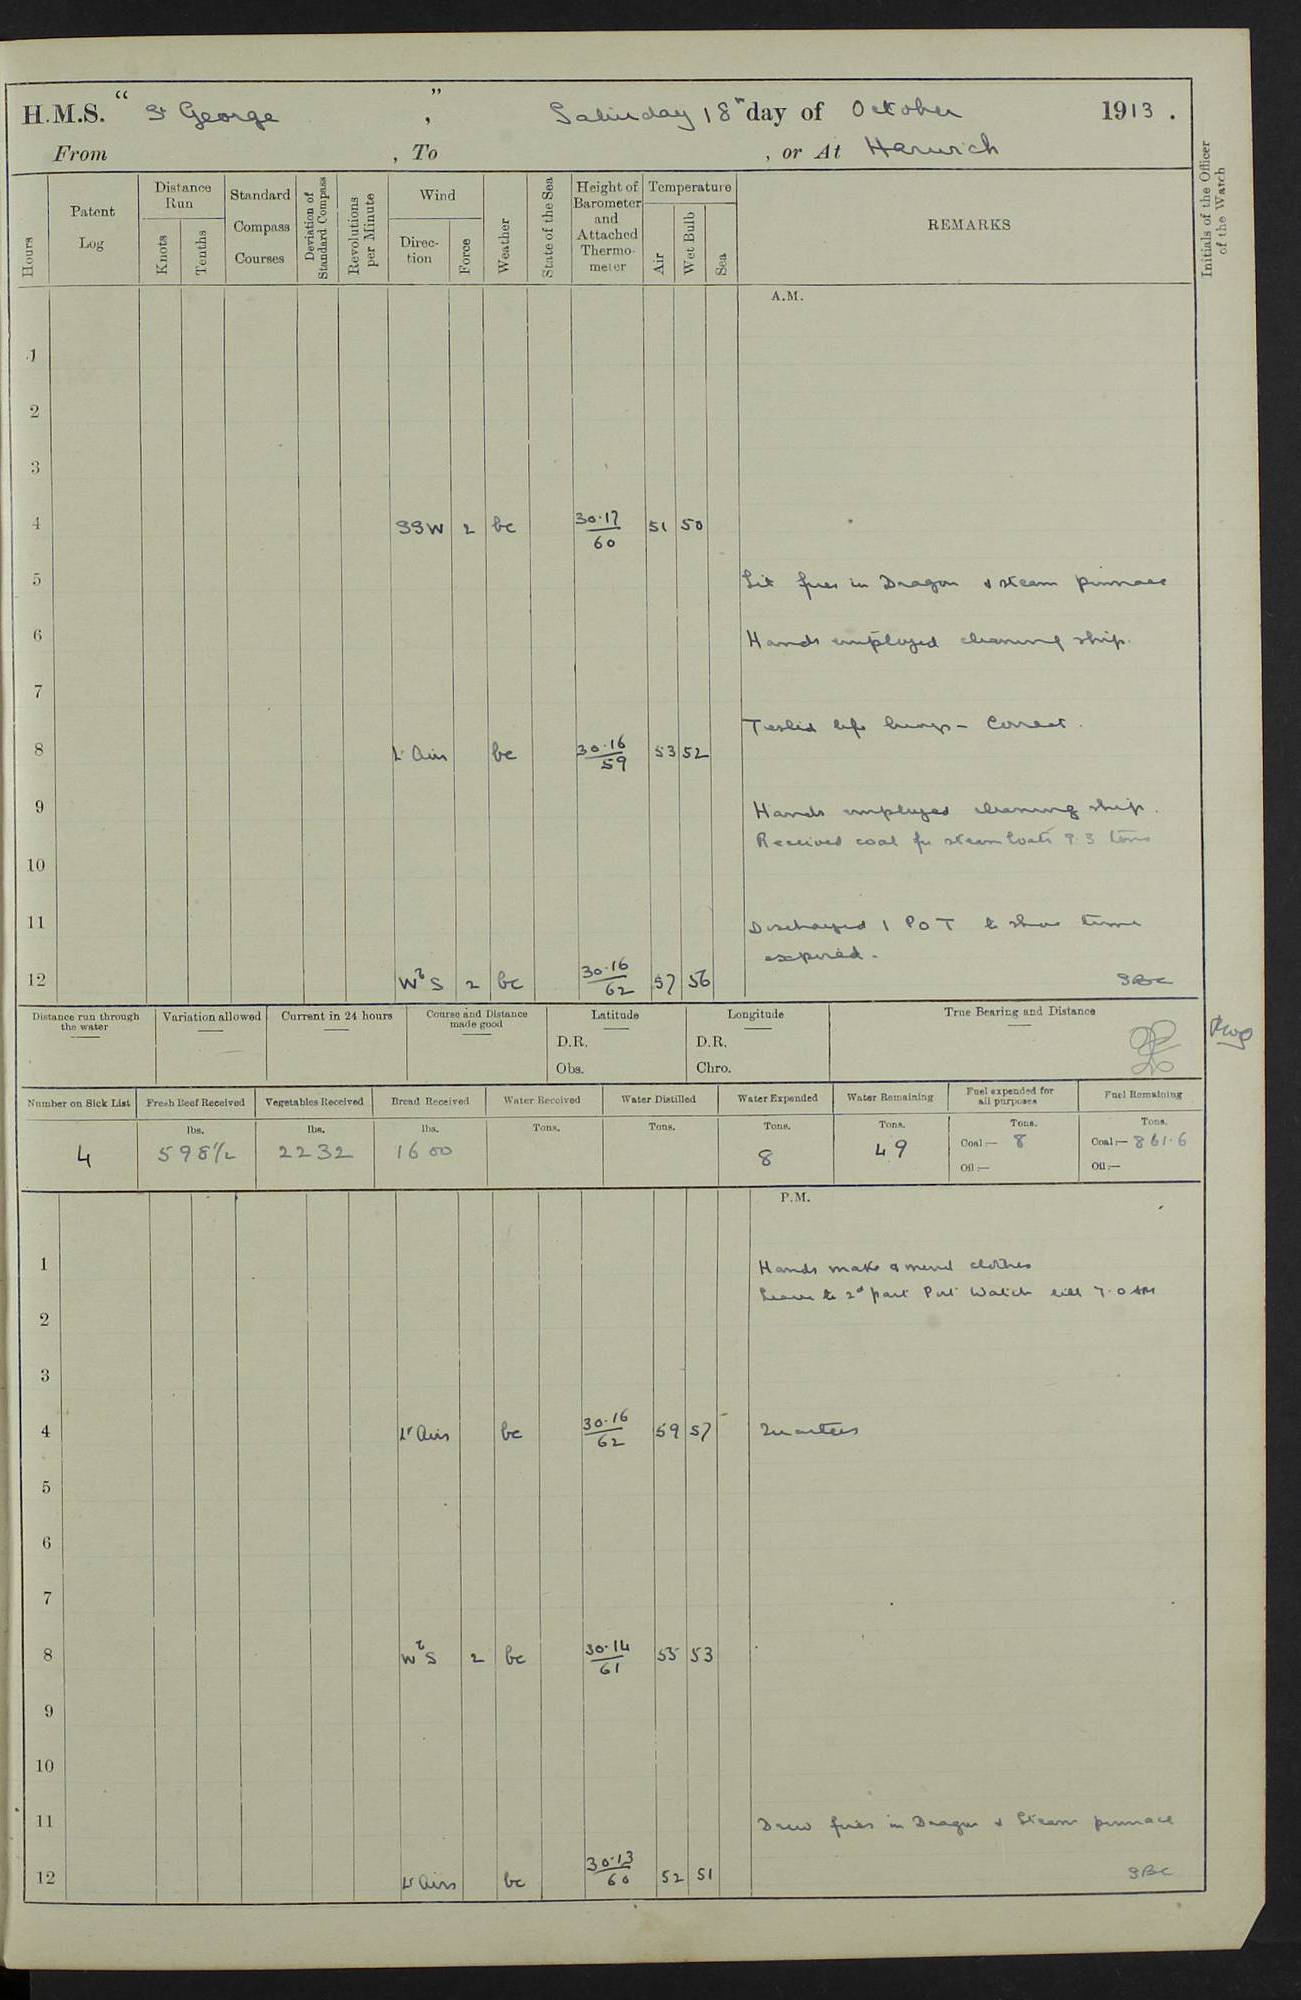 H.M.S. “ St George ” , Saturday 18th day of October 1913 .
From , To , or At Harwich
Hours
Patent Log
Distance Run
Knots
Tenths
Standard Compass Courses
Deviation of Standard Compass
Revolutions per Minute
Wind
Direction
Force
Weather
State of the Sea
Height of Barometer and Attached Thermometer
Temperature
Air
Wet Bulb
Sea
REMARKS
Initials of the Officer of the Watch
A.M.
1
2
3
4 SSW 2 bc 30.17/60 51 50
5 Lit fires in Dragon & steam pinnace
6 Hands employed cleaning ship.
7
Tested life buoys – Correct.
8 Lt Airs bc 30.16/59 53 52
9 Hands employed cleaning ship.
Received coal for steam boats 9.3 tons
10
11 Discharged 1 P O T to shore time
expired.
12 WbS 2 bc 30.16/62 57 56 SBC
Distance run through the water
Variation allowed
Current in 24 hours
Course and Distance made good
Latitude
D.R.
Obs.
Longitude
D.R.
Chro.
True Bearing and Distance
Number on Sick List
4
Fresh Beef Received
lbs.
598½
Vegetables Received
lbs.
2232
Bread Received
lbs.
1600
Water Received
Tons.
Water Distilled
Tons.
Water Expended
Tons.
8
Water Remaining
Tons.
49
Fuel expended for all purposes
Tons.
Coal:— 8
Oil:—
Fuel Remaining
Tons.
Coal:— 861.6
Oil:—
P.M.
1 Hands make & mend clothes
Leave to 2nd part Port Watch till 7.0 AM
2
3
4 Lt Airs bc 30.16/62 59 57 Quarters
5
6
7
8 WbS 2 bc 30.14/61 55 53
9
10
11 Drew fires in Dragon & Steam pinnace
12 Lt Airs bc 30.13/60 52 51 SBC